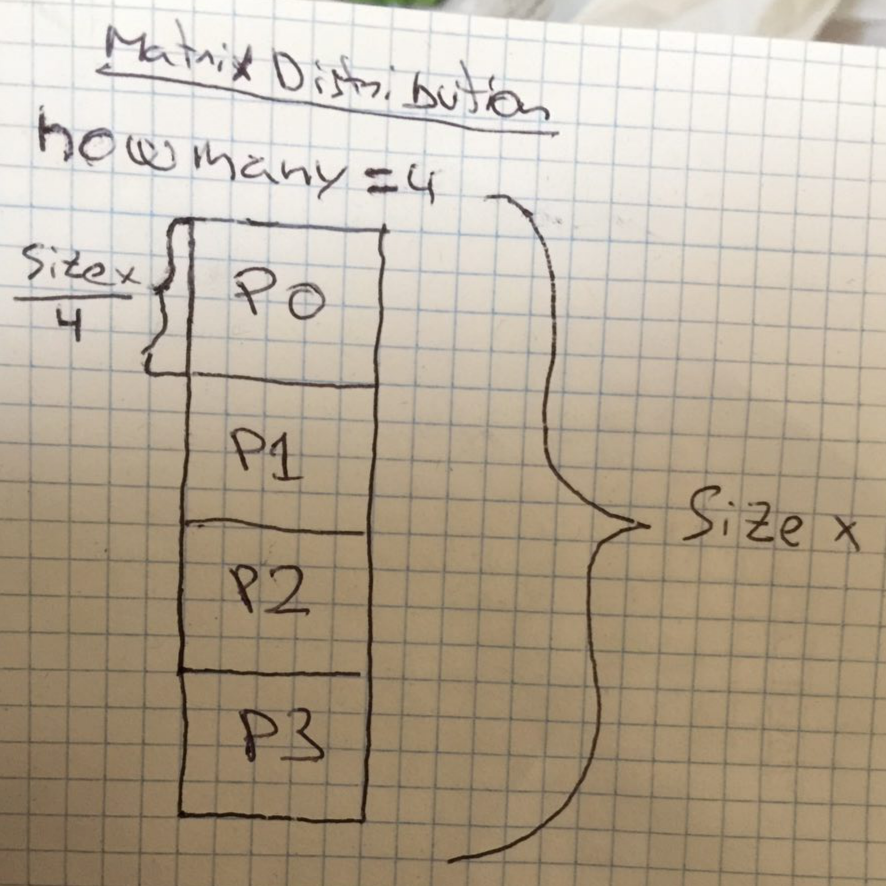 Matrix Distribution
how many = 4
Size x
4
P0
P1
P2
P3
Size x